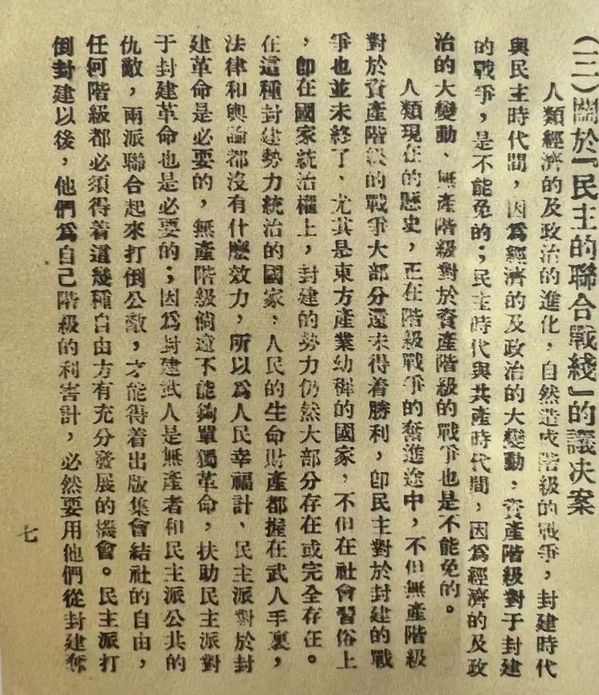 （三）關於『民主的聯合戰綫』的議决案
人類經濟的及政治的進化，自然造成階級的戰爭，封建時代
與民主時代間，因爲經濟的及政治的大變動，資產階級對于封建
的戰爭，是不能免的；民主時代與共產時代間，因爲經濟的及政
治的大變動、無產階級對於資產階級的戰爭也是不能免的。
人類現在的歷史，正在階級戰爭的奮進途中，不但無產階級
對於資產階級的戰爭大部分還未得着勝利，卽民主對於封建的戰
爭也並未終了，尤其是東方產業幼稺的國家，不但在社會習俗上
，卽在國家統治權上，封建的勢力仍然大部分存在或完全存在。
在這種封建勢力統治的國家，人民的生命財產都握在武人手裏，
法律和輿論都沒有什麽效力，所以爲人民幸福計，民主派對於封
建革命是必要的，無產階級倘還不能夠單獨革命，扶助民主派對
于封建革命也是必要的；因爲封建武人是無產者和民主派公共的
仇敵，兩派聯合起來打倒公敵，才能得着出版集會結社的自由，
任何階級都必須得着這幾種自由方有充分發展的機會。民主派打
倒封建以後，他們爲自己階級的利害計，必然要用他們從封建奪
七